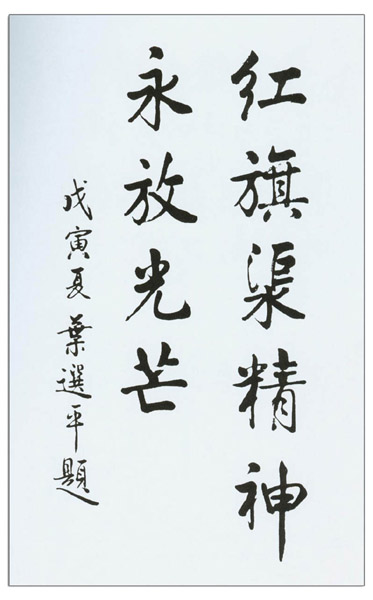 红旗渠精神
永放光芒
戊寅夏葉選平題